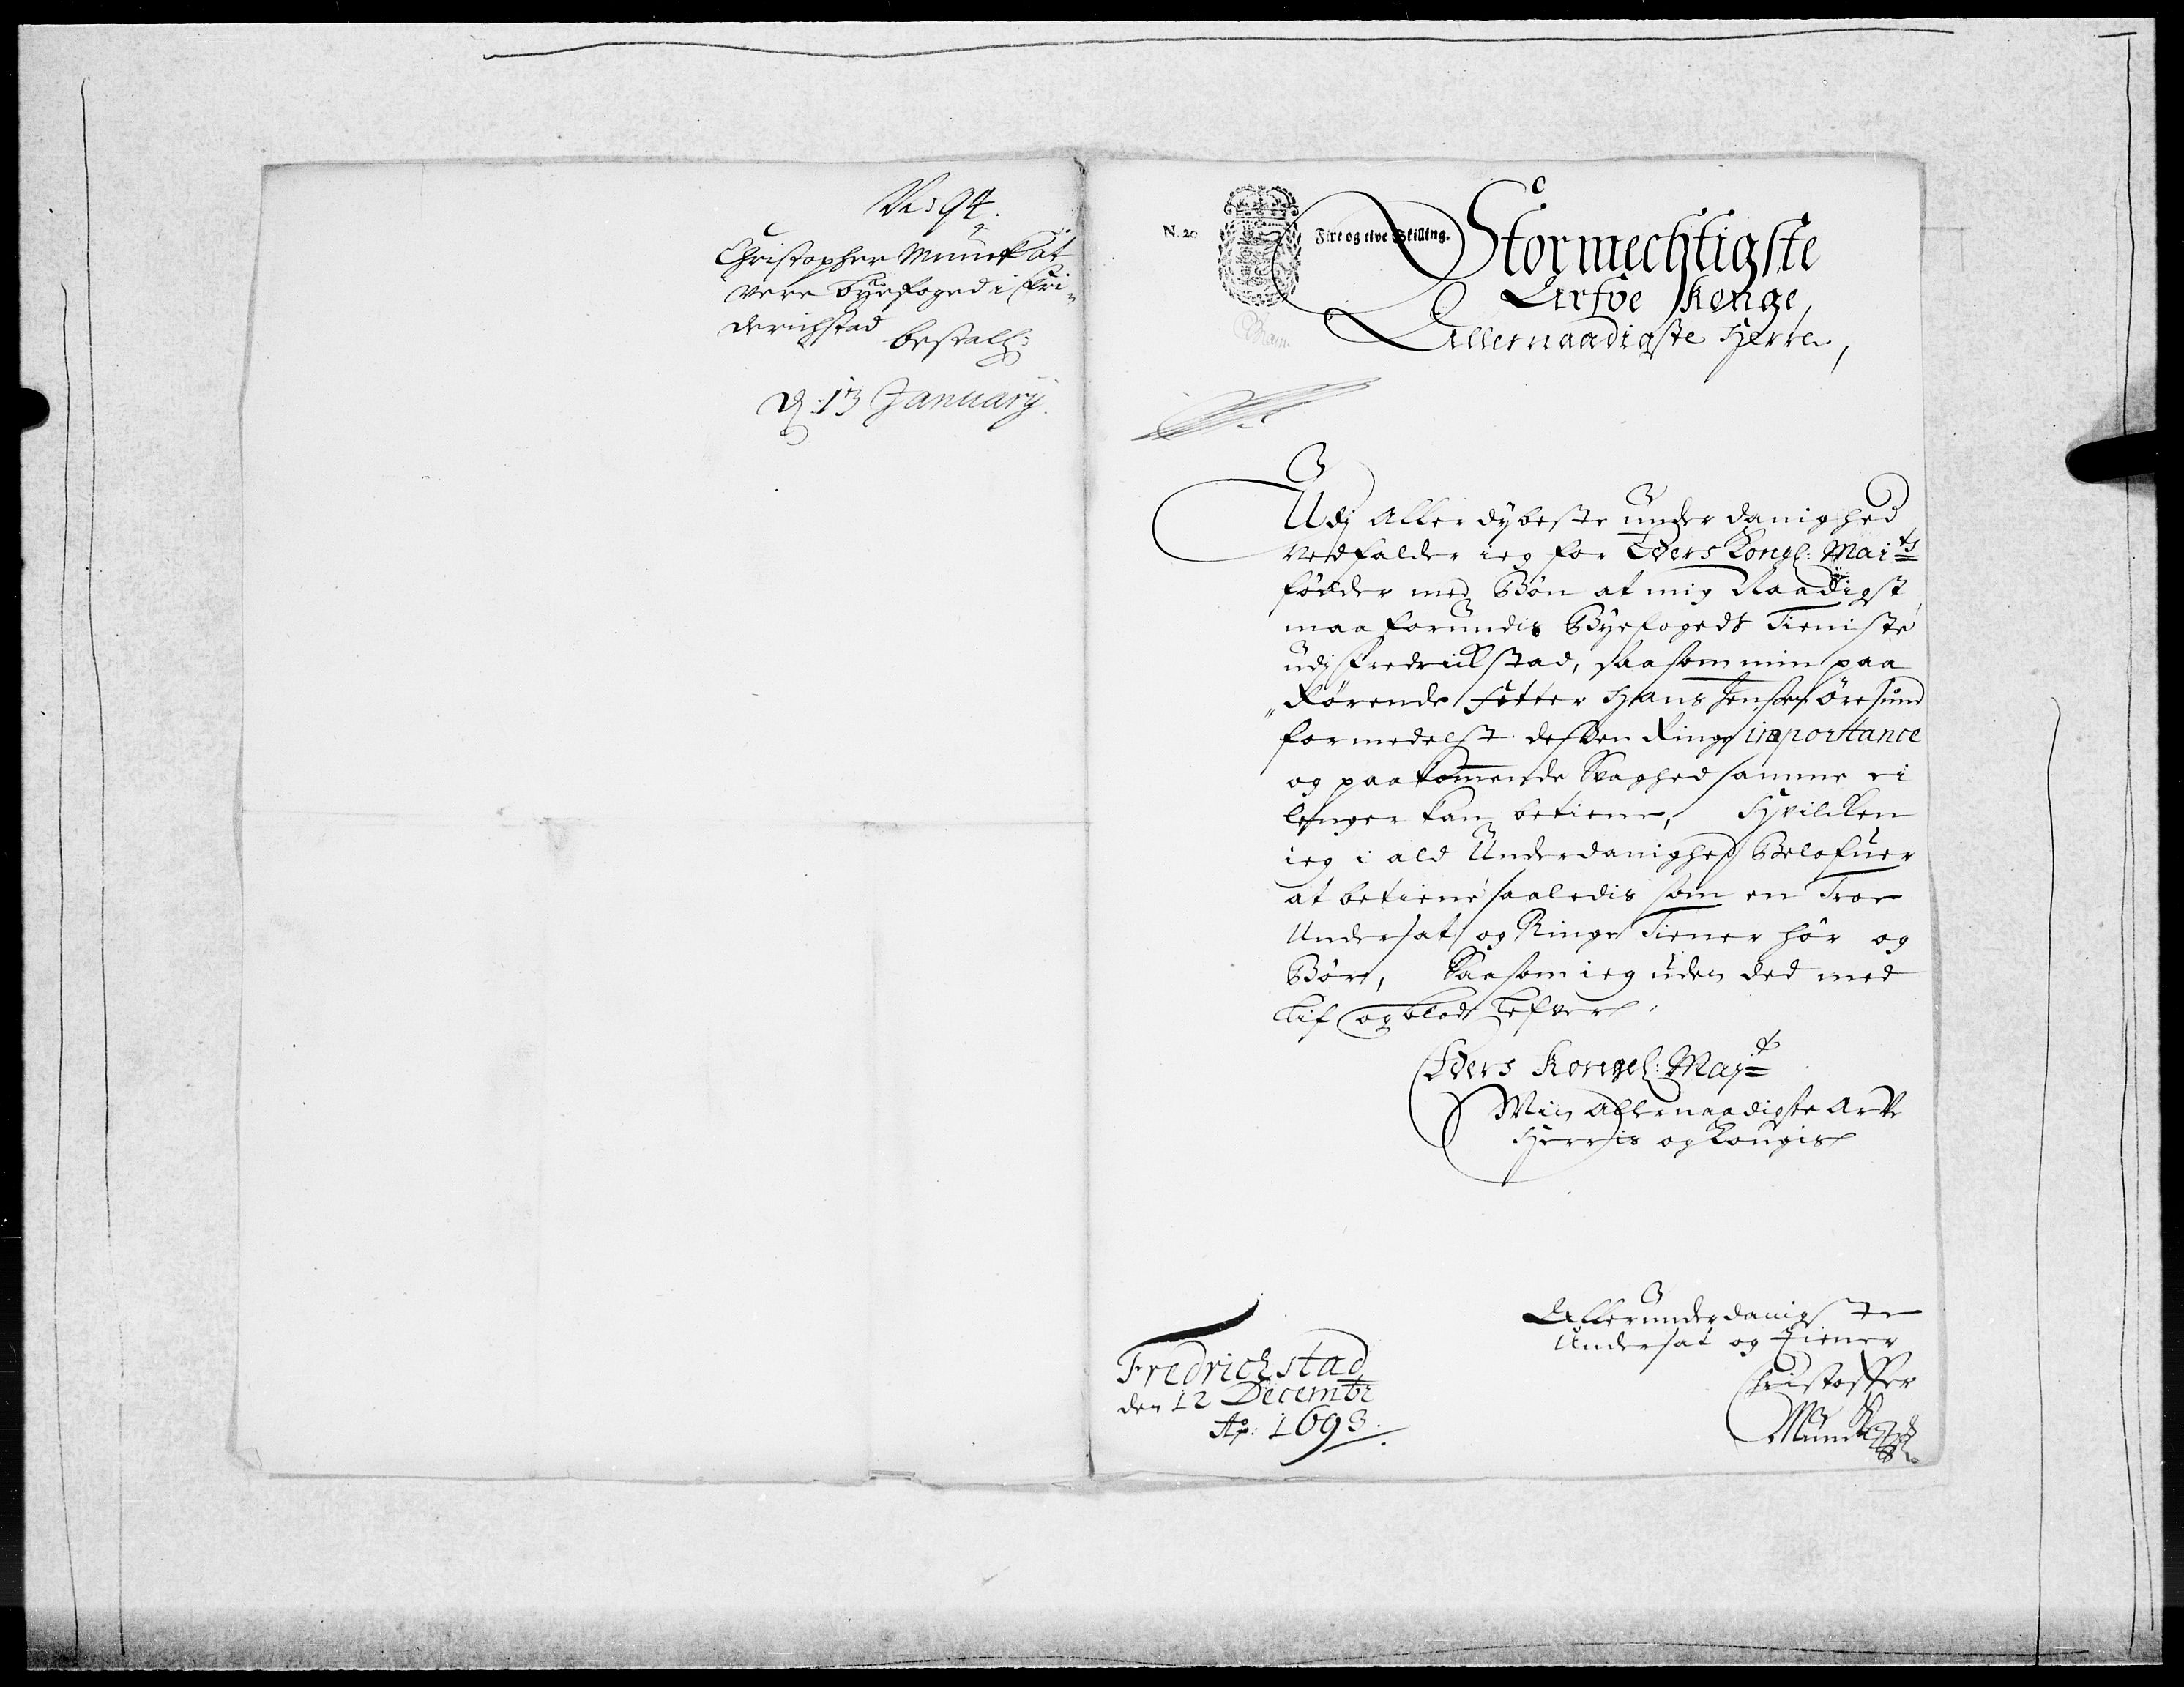 No 94.
Christopher Munck at
vere byefoged i Fri-
derichstad bestalt:
d: 13 January.
N. 20
Fire og tive Skilling.
Stormechtigste
Arfve Konge,
Allernaadigste Herre,
Udj aller dybeste underdanighed
nedfalder ieg for Eders Kongl: Maits
födder med Bön at mig Naadigst
maa forundis Byefogeds Tieniste
udj Fredrickstad, saasom min paa
Rörende Fetter Hans Jensen Öresund
formedelst dessen Ringe importance
og paakommende Svaghed samme ei
lenger kan betiene, Hvilcken
ieg i ald Underdanighed Belofuer
at betiene saaledis som en Troe
Undersat og Ringe Tiener hör og
Bör, Saasom ieg uden ded med
Lif og blod lefver
Eders Kongel: Majt
Min allernaadigste Arve
Herris og Kongis
Allerunderdanigste
Undersat og Tiener
Christoffer
Munck
Fredrichstad
den 12 Decembr
Ao: 1693.